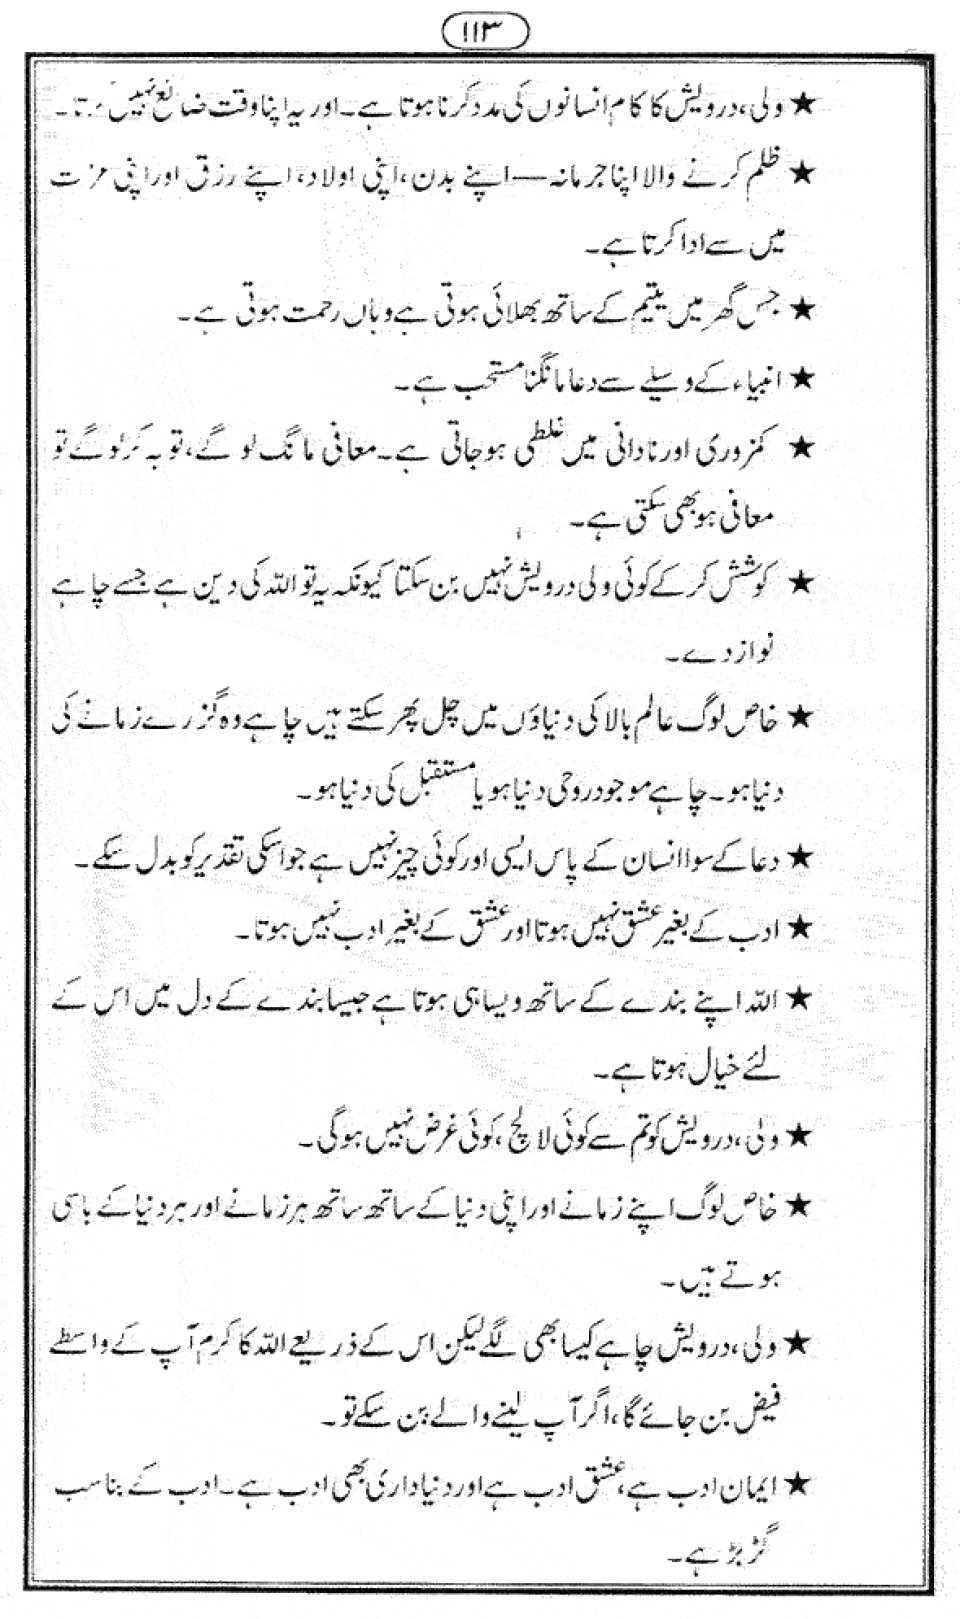 ۱۱۳
★ ولی، درویش کا کام انسانوں کی مدد کرنا ہوتا ہے۔ اور یہ اپنا وقت ضائع نہیں کرتا۔
★ ظلم کرنے والا اپنا جرمانہ — اپنے بدن، اپنی اولاد، اپنے رزق اور اپنی عزت
میں سے ادا کرتا ہے۔
★ جس گھر میں یتیم کے ساتھ بھلائی ہوتی ہے وہاں رحمت ہوتی ہے۔
★ انبیاء کے وسیلے سے دعا مانگنا مستحب ہے۔
★ کمزوری اور نادانی میں غلطی ہو جاتی ہے۔ معافی مانگ لو گے، توبہ کر لو گے تو
معافی ہو بھی سکتی ہے۔
★ کوشش کر کے کوئی ولی درویش نہیں بن سکتا کیونکہ یہ تو اللہ کی دین ہے جسے چاہے
نواز دے۔
★ خاص لوگ عالم بالا کی دنیاؤں میں چل پھر سکتے ہیں چاہے وہ گزرے زمانے کی
دنیا ہو۔ چاہے موجود روحی دنیا ہو یا مستقبل کی دنیا ہو۔
★ دعا کے سوا انسان کے پاس ایسی اور کوئی چیز نہیں ہے جو اسکی تقدیر کو بدل سکے۔
★ ادب کے بغیر عشق نہیں ہوتا اور عشق کے بغیر ادب نہیں ہوتا۔
★ اللہ اپنے بندے کے ساتھ ویسا ہی ہوتا ہے جیسا بندے کے دل میں اس کے
لئے خیال ہوتا ہے۔
★ ولی، درویش کو تم سے کوئی لالچ، کوئی غرض نہیں ہوگی۔
★ خاص لوگ اپنے زمانے اور اپنی دنیا کے ساتھ ساتھ ہر زمانے اور ہر دنیا کے باسی
ہوتے ہیں۔
★ ولی، درویش چاہے کیسا بھی لگے لیکن اس کے ذریعے اللہ کا کرم آپ کے واسطے
فیض بن جائے گا، اگر آپ لینے والے بن سکے تو۔
★ ایمان ادب ہے، عشق ادب ہے اور دنیاداری بھی ادب ہے۔ ادب کے بنا سب
گڑبڑ ہے۔